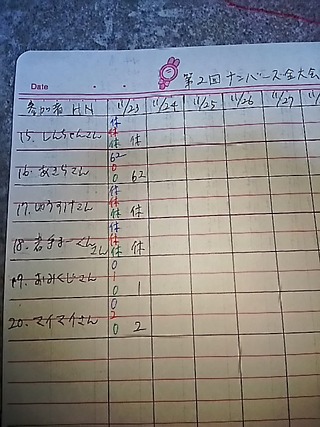 Date ・ ・ 第2回ナンバーズ全大会
参加者HN 11/23 11/24 11/25 11/26 11/27
休
休
15. しんちゃんさん 休 休
62
0
16. あきらさん 0 62
休
休
17. ゆうすけさん 休 休
休
休
18. 若手まーくんさん 休 休
0
1
19. おみくじさん 0 1
0
2
20. マイマイさん 0 2